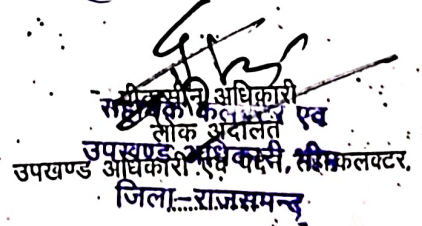 पीठासीन अधिकारी
सहायक कलक्टर एवं
लोक अदालत
उपखण्ड अधिकारी, भीम
उपखण्ड अधिकारी एवं पदेन, कलक्टर,
जिला-राजसमन्द